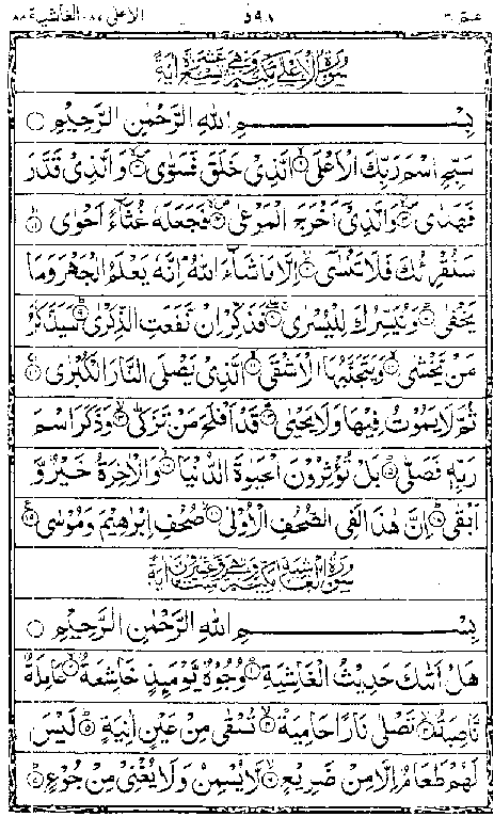 عمّ ٣٠ ٥٩٨ الاعلى ٨٧ - الغاشية ٨٨
سُوْرَةُ الْاَعْلٰى مَكِّيَّةٌ وَّهِيَ تِسْعَ عَشْرَةَ اٰيَةً
بِسْمِ اللّٰهِ الرَّحْمٰنِ الرَّحِيْمِ ○
سَبِّحِ اسْمَ رَبِّكَ الْاَعْلَى ۙ﴿١﴾ الَّذِيْ خَلَقَ فَسَوّٰى ۙ﴿٢﴾ وَالَّذِيْ قَدَّرَ
فَهَدٰى ۙ﴿٣﴾ وَالَّذِيْٓ اَخْرَجَ الْمَرْعٰى ۙ﴿٤﴾ فَجَعَلَهٗ غُثَآءً اَحْوٰى ؕ﴿٥﴾
سَنُقْرِئُكَ فَلَا تَنْسٰٓى ۙ﴿٦﴾ اِلَّا مَا شَآءَ اللّٰهُ ؕ اِنَّهٗ يَعْلَمُ الْجَهْرَ وَمَا
يَخْفٰى ؕ﴿٧﴾ وَنُيَسِّرُكَ لِلْيُسْرٰى ۚ﴿٨﴾ فَذَكِّرْ اِنْ نَّفَعَتِ الذِّكْرٰى ؕ﴿٩﴾ سَيَذَّكَّرُ
مَنْ يَّخْشٰى ۙ﴿١٠﴾ وَيَتَجَنَّبُهَا الْاَشْقَى ۙ﴿١١﴾ الَّذِيْ يَصْلَى النَّارَ الْكُبْرٰى ۚ﴿١٢﴾
ثُمَّ لَا يَمُوْتُ فِيْهَا وَلَا يَحْيٰى ؕ﴿١٣﴾ قَدْ اَفْلَحَ مَنْ تَزَكّٰى ۙ﴿١٤﴾ وَذَكَرَ اسْمَ
رَبِّهٖ فَصَلّٰى ؕ﴿١٥﴾ بَلْ تُؤْثِرُوْنَ الْحَيٰوةَ الدُّنْيَا ۖ﴿١٦﴾ وَالْاٰخِرَةُ خَيْرٌ وَّ
اَبْقٰى ؕ﴿١٧﴾ اِنَّ هٰذَا لَفِي الصُّحُفِ الْاُوْلٰى ۙ﴿١٨﴾ صُحُفِ اِبْرٰهِيْمَ وَمُوْسٰى ﴿١٩﴾
سُوْرَةُ الْغَاشِيَةِ مَكِّيَّةٌ وَّهِيَ سِتٌّ وَّعِشْرُوْنَ اٰيَةً
بِسْمِ اللّٰهِ الرَّحْمٰنِ الرَّحِيْمِ ○
هَلْ اَتٰىكَ حَدِيْثُ الْغَاشِيَةِ ؕ﴿١﴾ وُجُوْهٌ يَّوْمَئِذٍ خَاشِعَةٌ ۙ﴿٢﴾ عَامِلَةٌ
نَّاصِبَةٌ ۙ﴿٣﴾ تَصْلٰى نَارًا حَامِيَةً ۙ﴿٤﴾ تُسْقٰى مِنْ عَيْنٍ اٰنِيَةٍ ؕ﴿٥﴾ لَيْسَ
لَهُمْ طَعَامٌ اِلَّا مِنْ ضَرِيْعٍ ۙ﴿٦﴾ لَّا يُسْمِنُ وَلَا يُغْنِيْ مِنْ جُوْعٍ ؕ﴿٧﴾